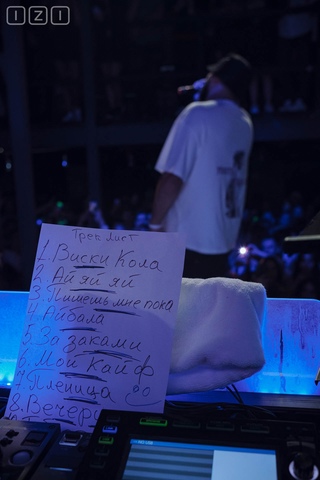 IZI
Трек лист
1. Виски Кола
2. Ай яй яй
3. Пишешь мне пока
4. Айбала
5. За заками
6. Мой Кайф
7. Пленица
8. Вечер